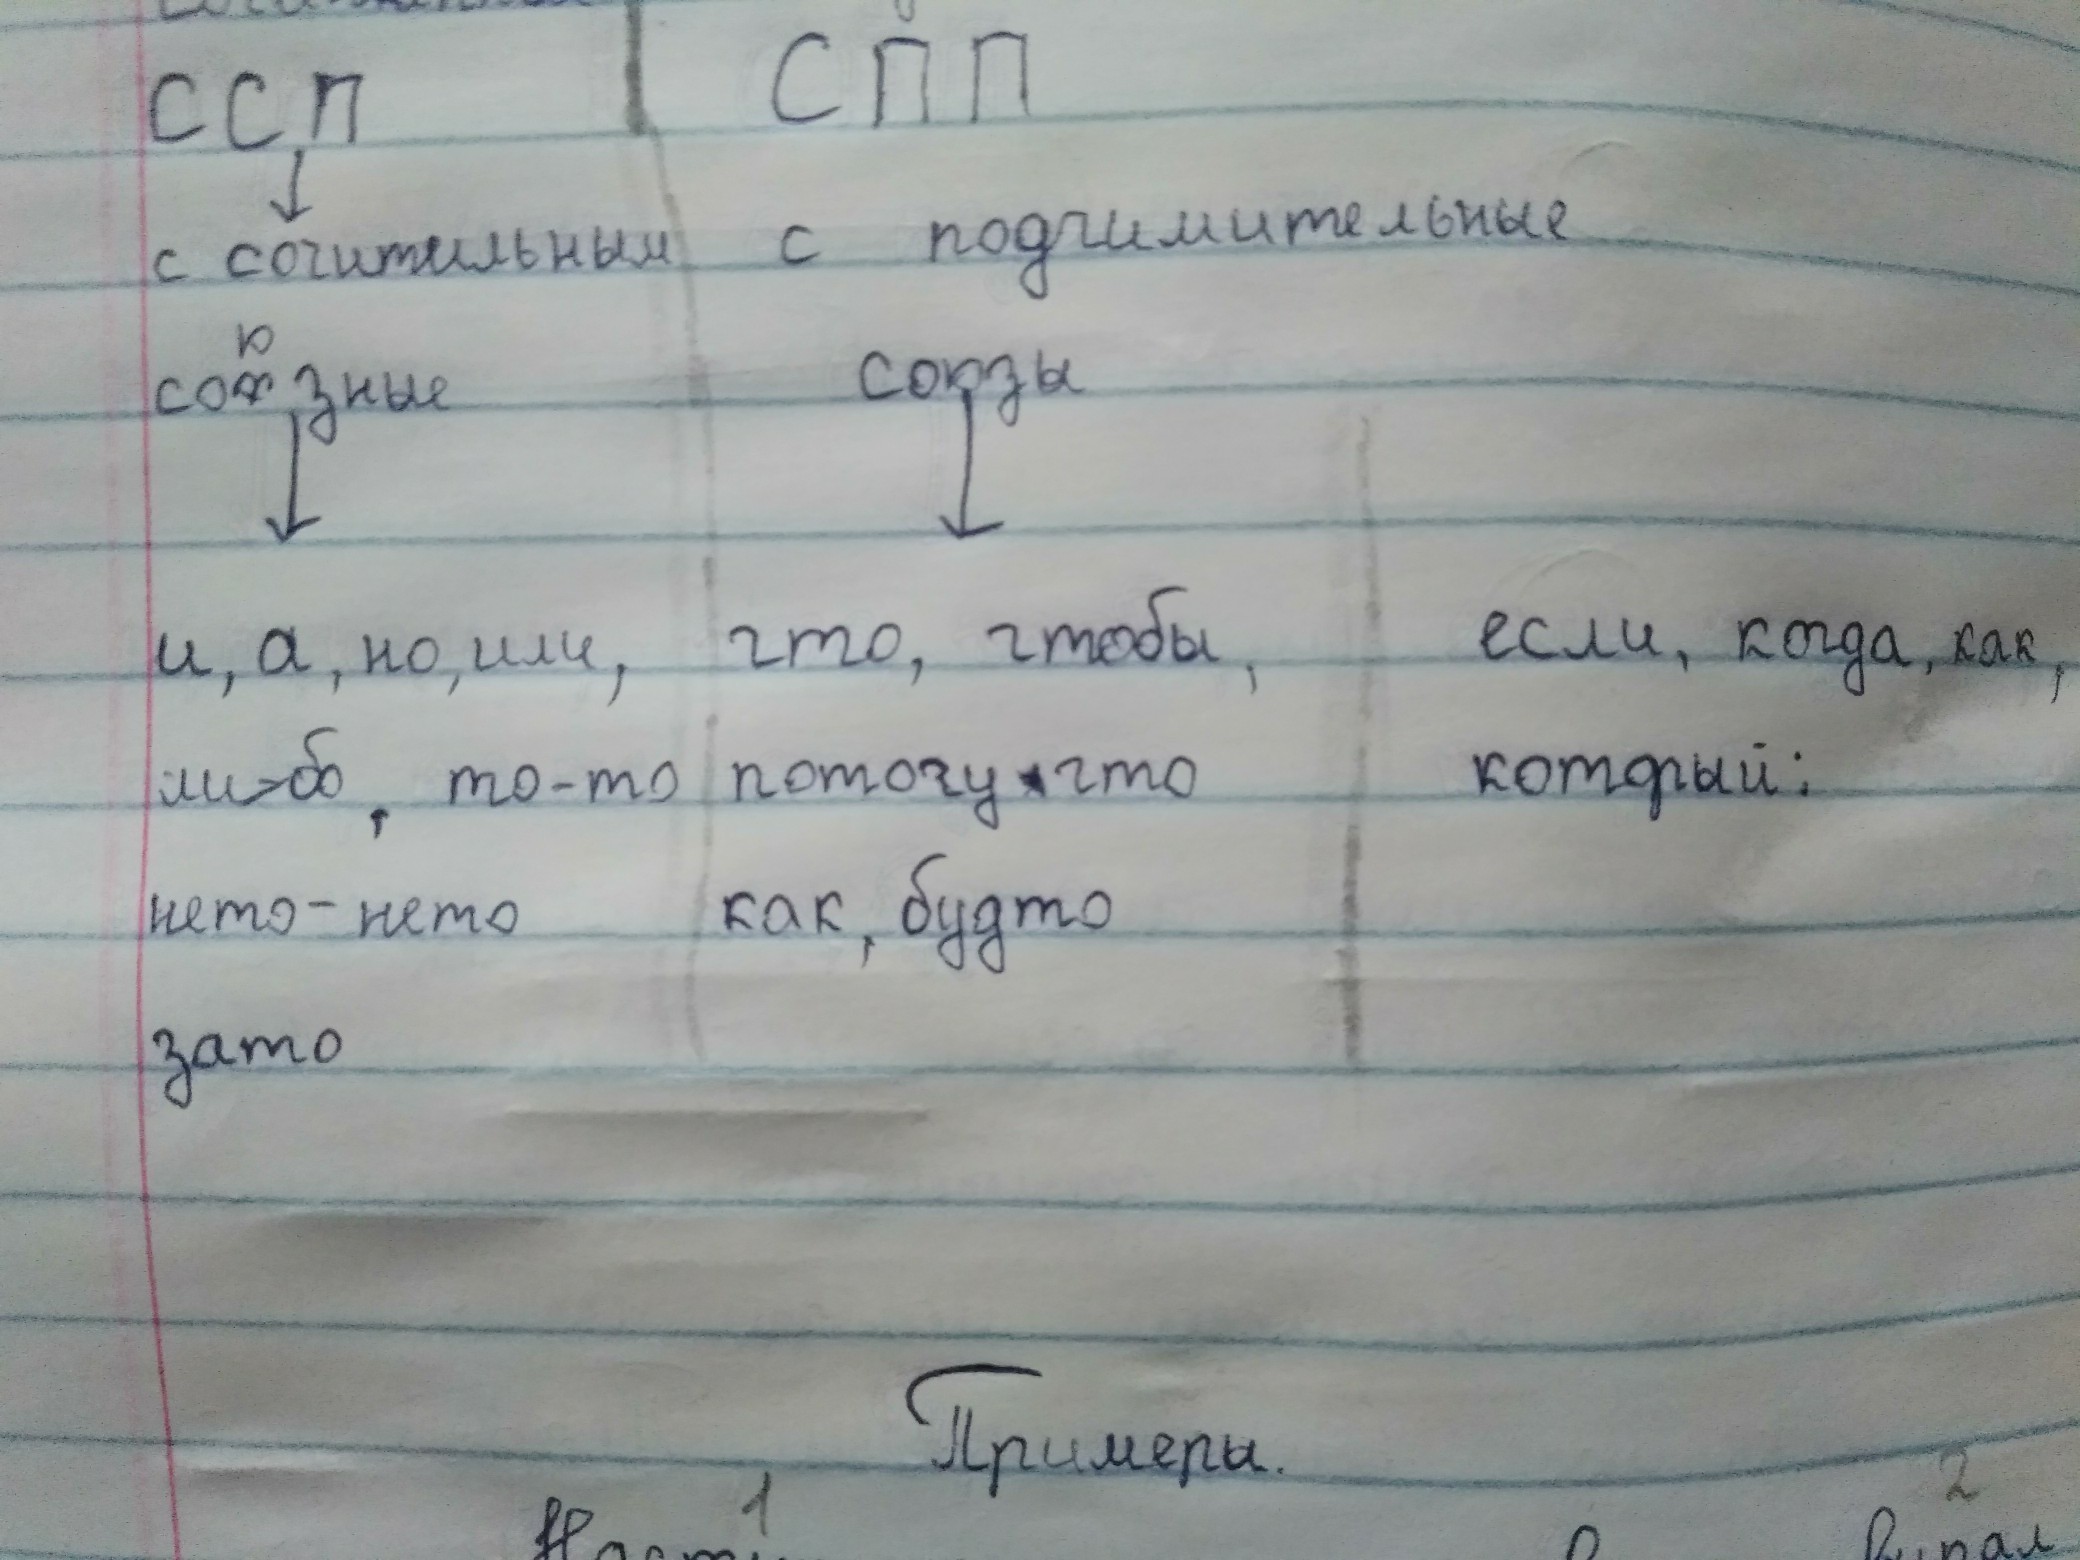 ССП СПП
с сочительным с подчимительные
ю
союзные союзы
и, а, но, или, что, чтобы, если, когда, как,
либо, то-то потому что который:
нето-нето как, будто
зато
Примеры.
1 2